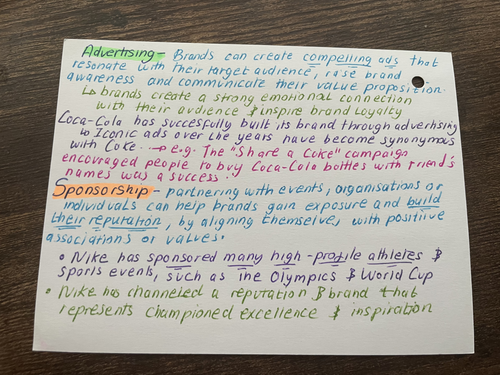 Advertising - Brands can create compelling ads that
resonate with their target audience, raise brand
awareness and communicate their value proposition.
↳ brands create a strong emotional connection
with their audience & inspire brand loyalty
Coca-Cola has succesfully built its brand through advertising
↳ Iconic ads over the years have become synonymous
with Coke → e.g. The "Share a Coke" campaign
encouraged people to buy Coca-Cola bottles with friend's
names was a success.
Sponsorship - partnering with events, organisations or
individuals can help brands gain exposure and build
their reputation, by aligning themselves with positive
associations or values.
• Nike has sponsored many high-profile athletes &
sports events, such as the Olympics & World Cup
• Nike has channeled a reputation & brand that
represents championed excellence & inspiration